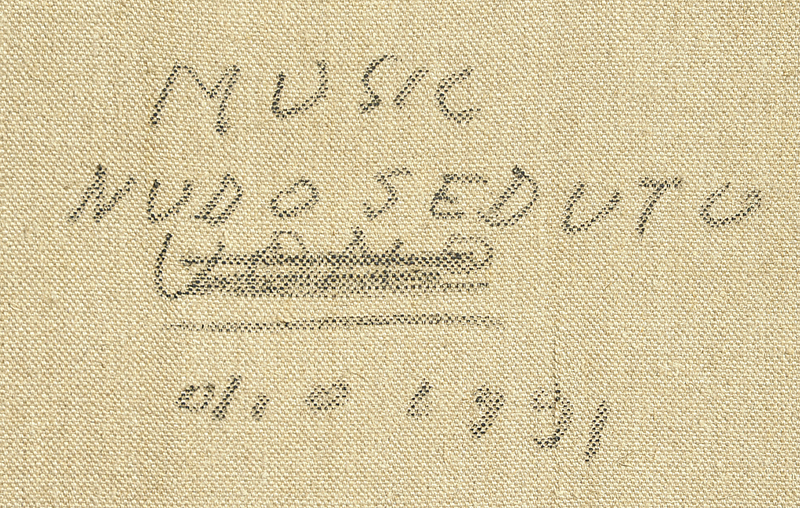 MUSIC
NUDO SEDUTO
olio 1991